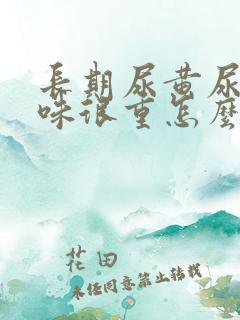 長期尿黄尿
味很重怎麼
花田
未经同意禁止转载